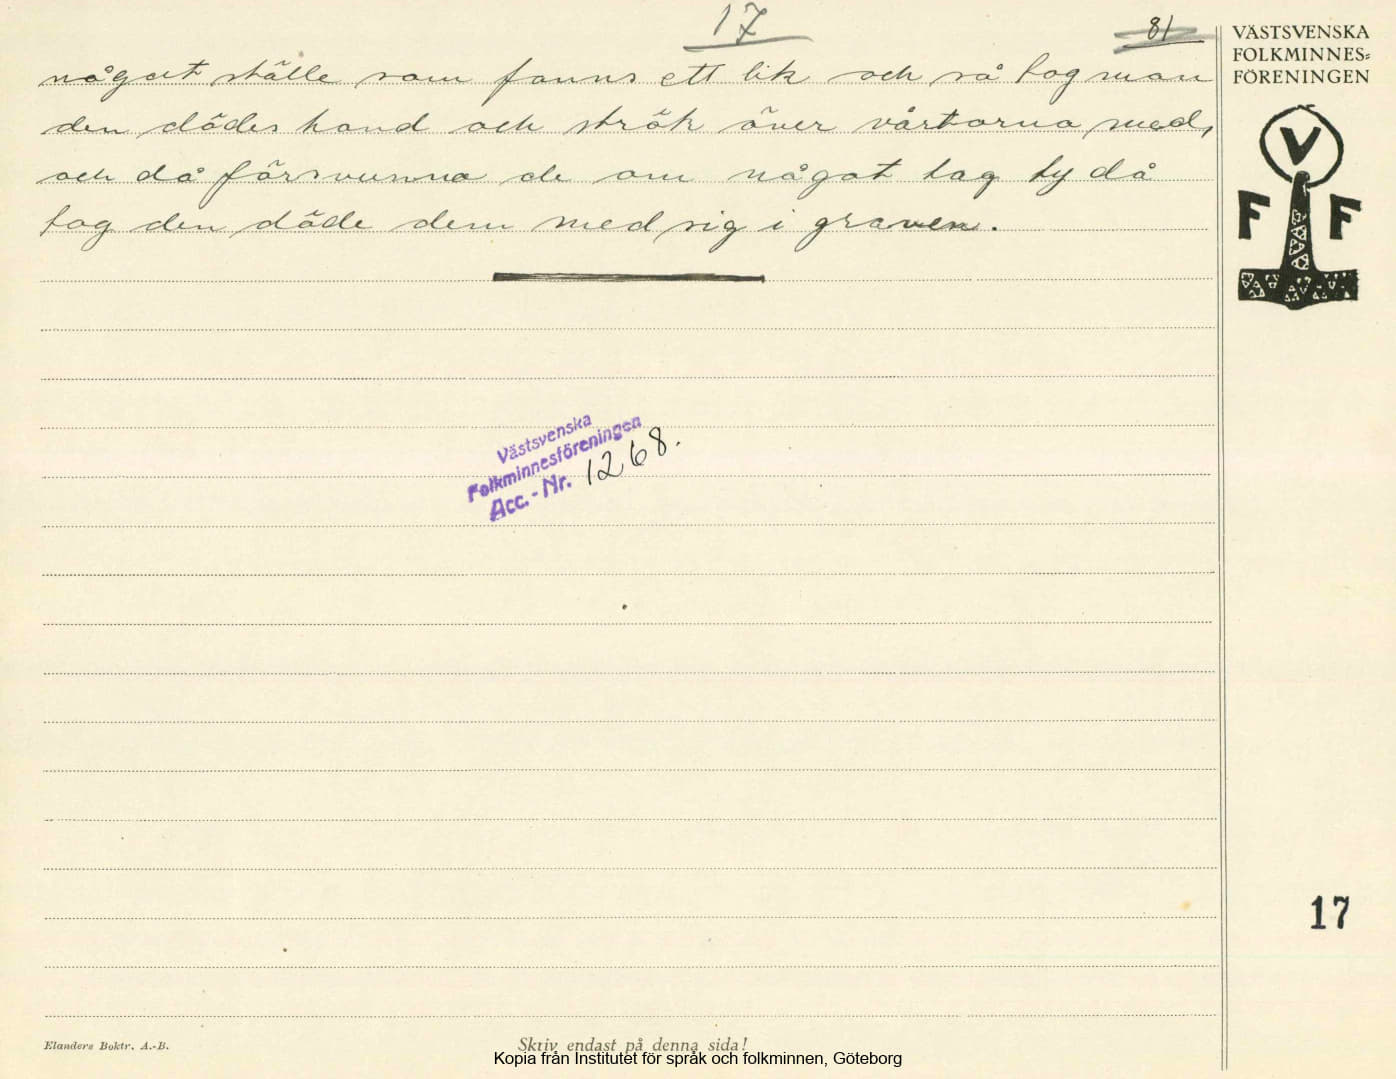 17
81
VÄSTSVENSKA
FOLKMINNES=
FÖRENINGEN
V
F F
något ställe som fanns ett lik och så tog man
den dödes hand och strök över vårtorna med,
och då försvunno de om något tag ty då
tog den döde dem med sig i graven.
Västsvenska
Folkminnesföreningen
Acc.-Nr. 1268.
17
Elanders Boktr. A.-B.
Skriv endast på denna sida!
Kopia från Institutet för språk och folkminnen, Göteborg